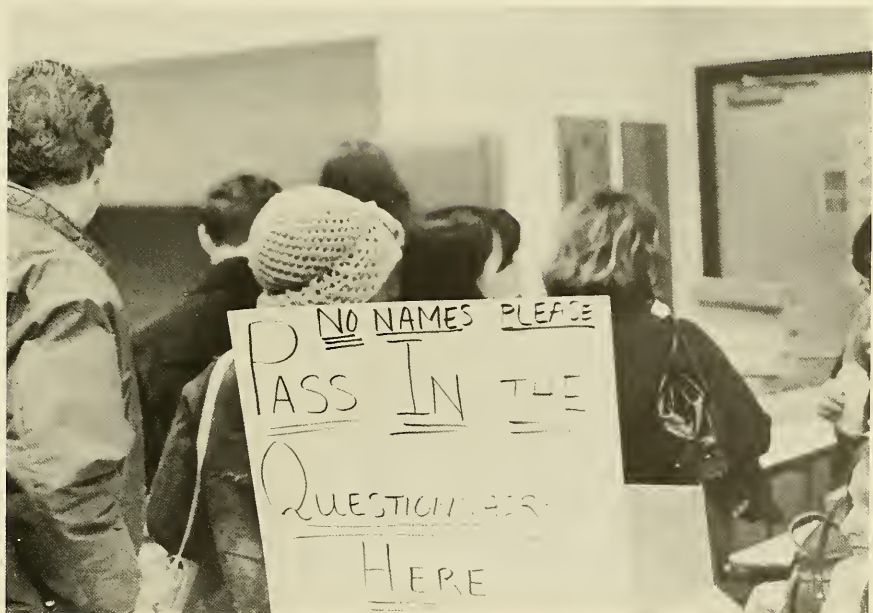 NO NAMES PLEASE
PASS IN THE
QUESTIONNAIRE
HERE